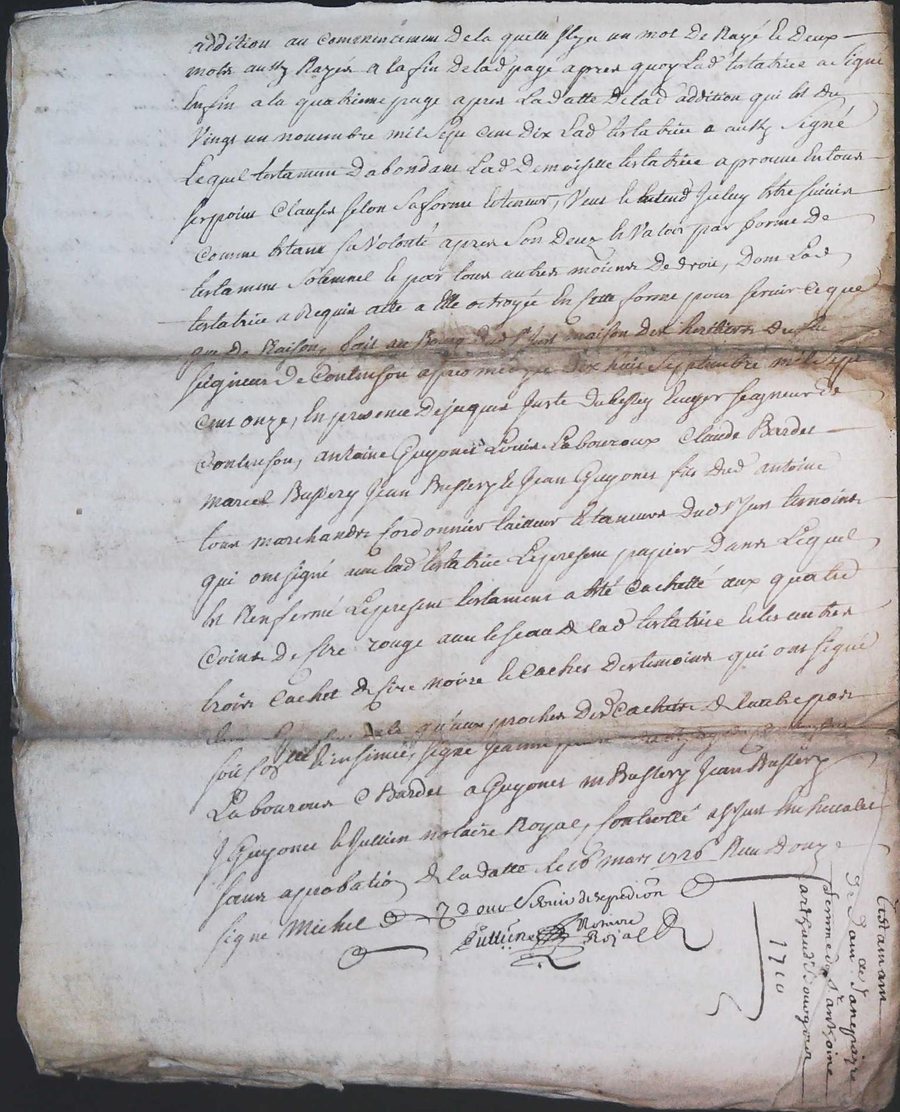 addition au commencemen de la quelle Il y a un mot de Rayé le deux
mots aussy Rayés a la fin de lad page apres quoy lad testatrice a signé
Enfin a la quatrieme page apres la datte de lad addition qui est du
Vingt un nouembre mil sept cent dix lad testatrice a aussy signé
lequel testamen d'abondant lad Demoiselle testatrice aprouue en tous
ses points clauses selon sa forme et teneur, Veut et entend Iceluy estre suiuis
comme estant sa Volonté apres son deux et Valoir par forme de
testamen solemnel et par tous autres moiens de droit, dont lad
testatrice a Requis acte a Elle octroyée En cette forme pour seruir ce que
que de Raison, fait au Bourg maison des heritiers du feu
seigneur de Contenson apres midy le dix huit septembre mil sept
cent onze, En presence de jaques Juste du Bessey Escuyer seigneur de
Contenson, antoine Guyonet Louis Labouroux Claude Bardet
marcel Bussery Jean Bussery et Jean Guyonet fils dud antoine
tous marchands cordonnier tailleur et taneurs dud st Just temoins
qui ont signé auec lad testatrice Le present papier dans Lequel
est Renfermé Le present testament a été Cachetté aux quatre
Coins de sire rouge auec le seau de lad testatrice et les autres
trois Cachet de sire noire le Cachet des temoins qui ont signé
qu'aux proches des Cachets de l'autre part
soit insinué, signé Jeanne
Labouroux C Bardet a Guyonet m Bussery Jean Bussery
J Guyonet et Jullien notaire Royal, Controllé a st Just En heuallet
sans aprobation de la datte le 16 mars 1726 Receu douze
signé Michel Pour seruir d'expedition
Jullien Notaire
Royal
testamant
de Dam de
femme de St anthoine
arthaud
1710